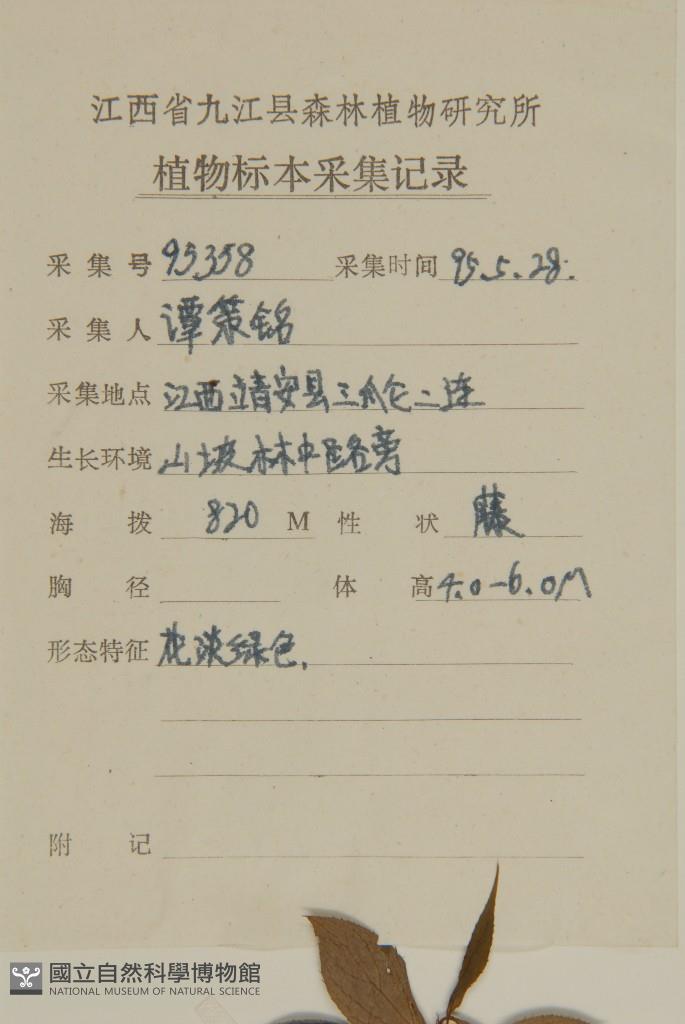 江西省九江县森林植物研究所
植物标本采集记录
采集号 95358 采集时间 95.5.28.
采集人 谭策铭
采集地点 江西靖安县三爪仑二连
生长环境 山坡林中路旁
海拨 820 M 性状 藤
胸径 体高 4.0-6.0M
形态特征 花淡绿色.
附记
國立自然科學博物館
NATIONAL MUSEUM OF NATURAL SCIENCE